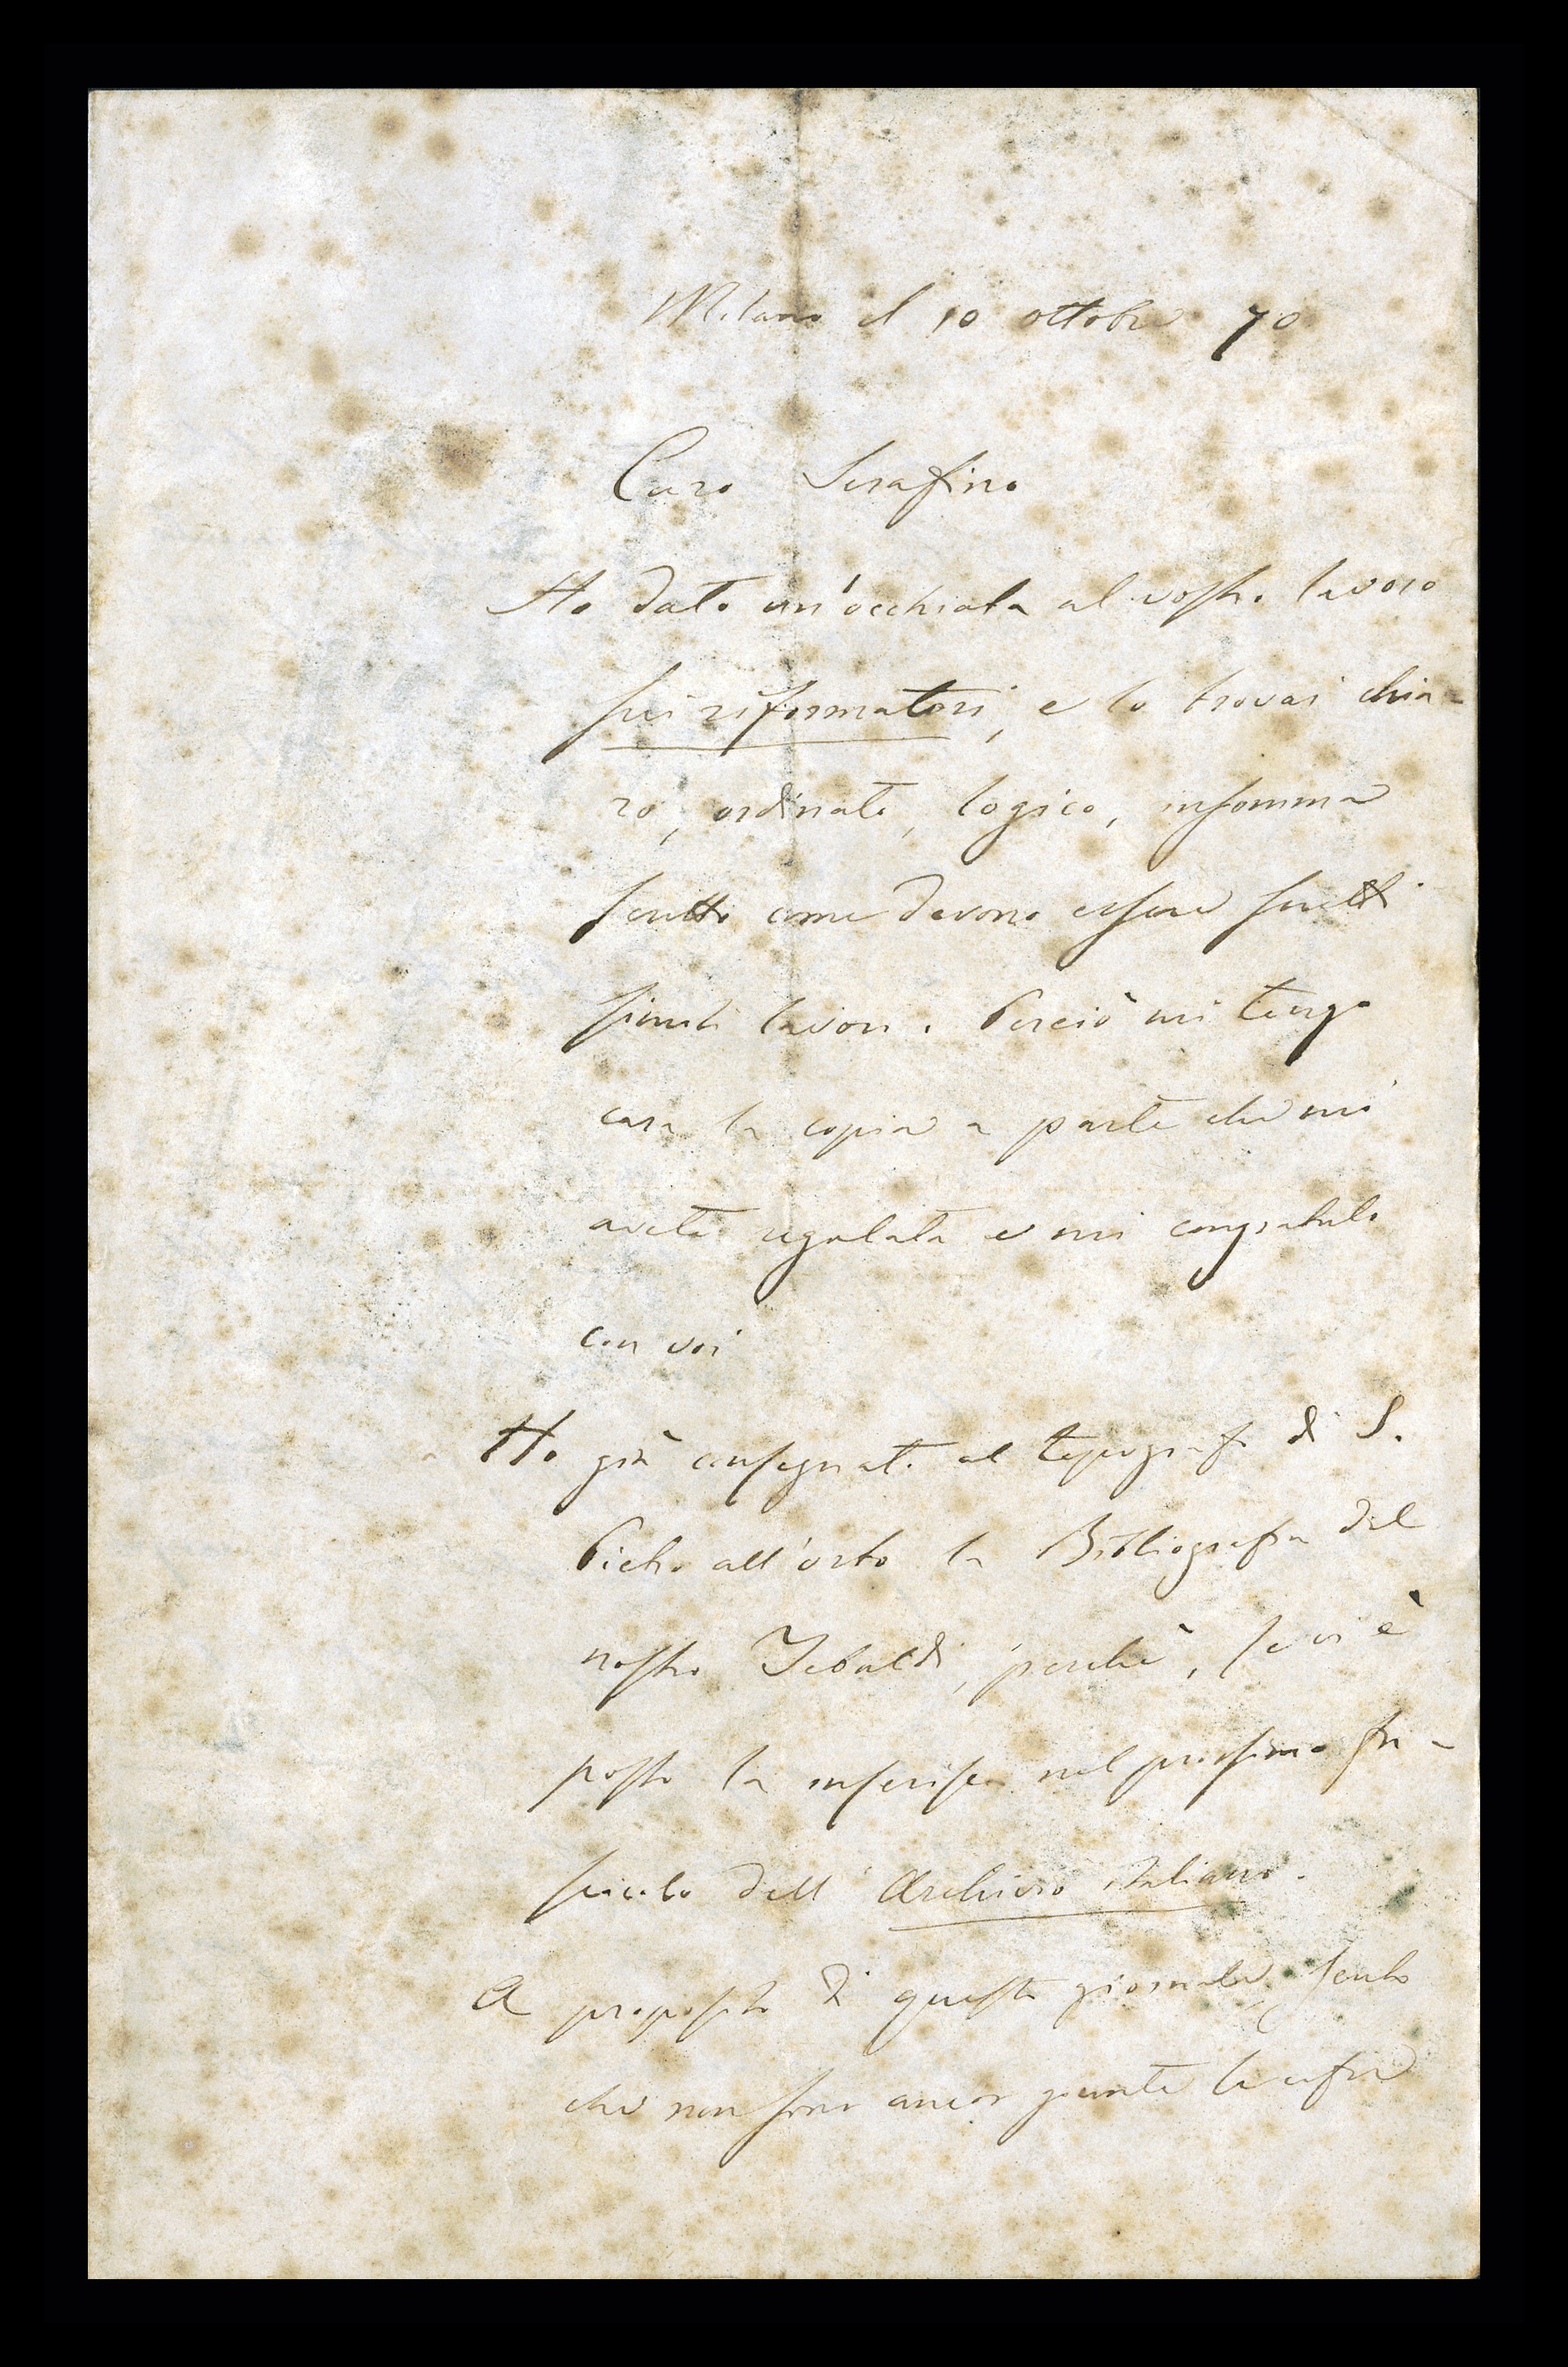 Milano il 10 ottobre 70
Caro Serafino
Ho dato un'occhiata al vostro lavoro
sui riformatori, e lo trovai chia-
ro, ordinato, logico, insomma
scritto come devono essere scritti
simili lavori. Perciò mi tengo
cara la copia a parte che mi
avete regalata e mi congratulo
con voi
Ho già consegnato al tipografo di S.
Pietro all'orto la Bibliografia del
nostro Tebaldi, perchè, se vi è
posto la inserisca nel prossimo fa-
scicolo dell'Archivio italiano.
A proposito di questo giornale, sento
che non sono ancor giunte le